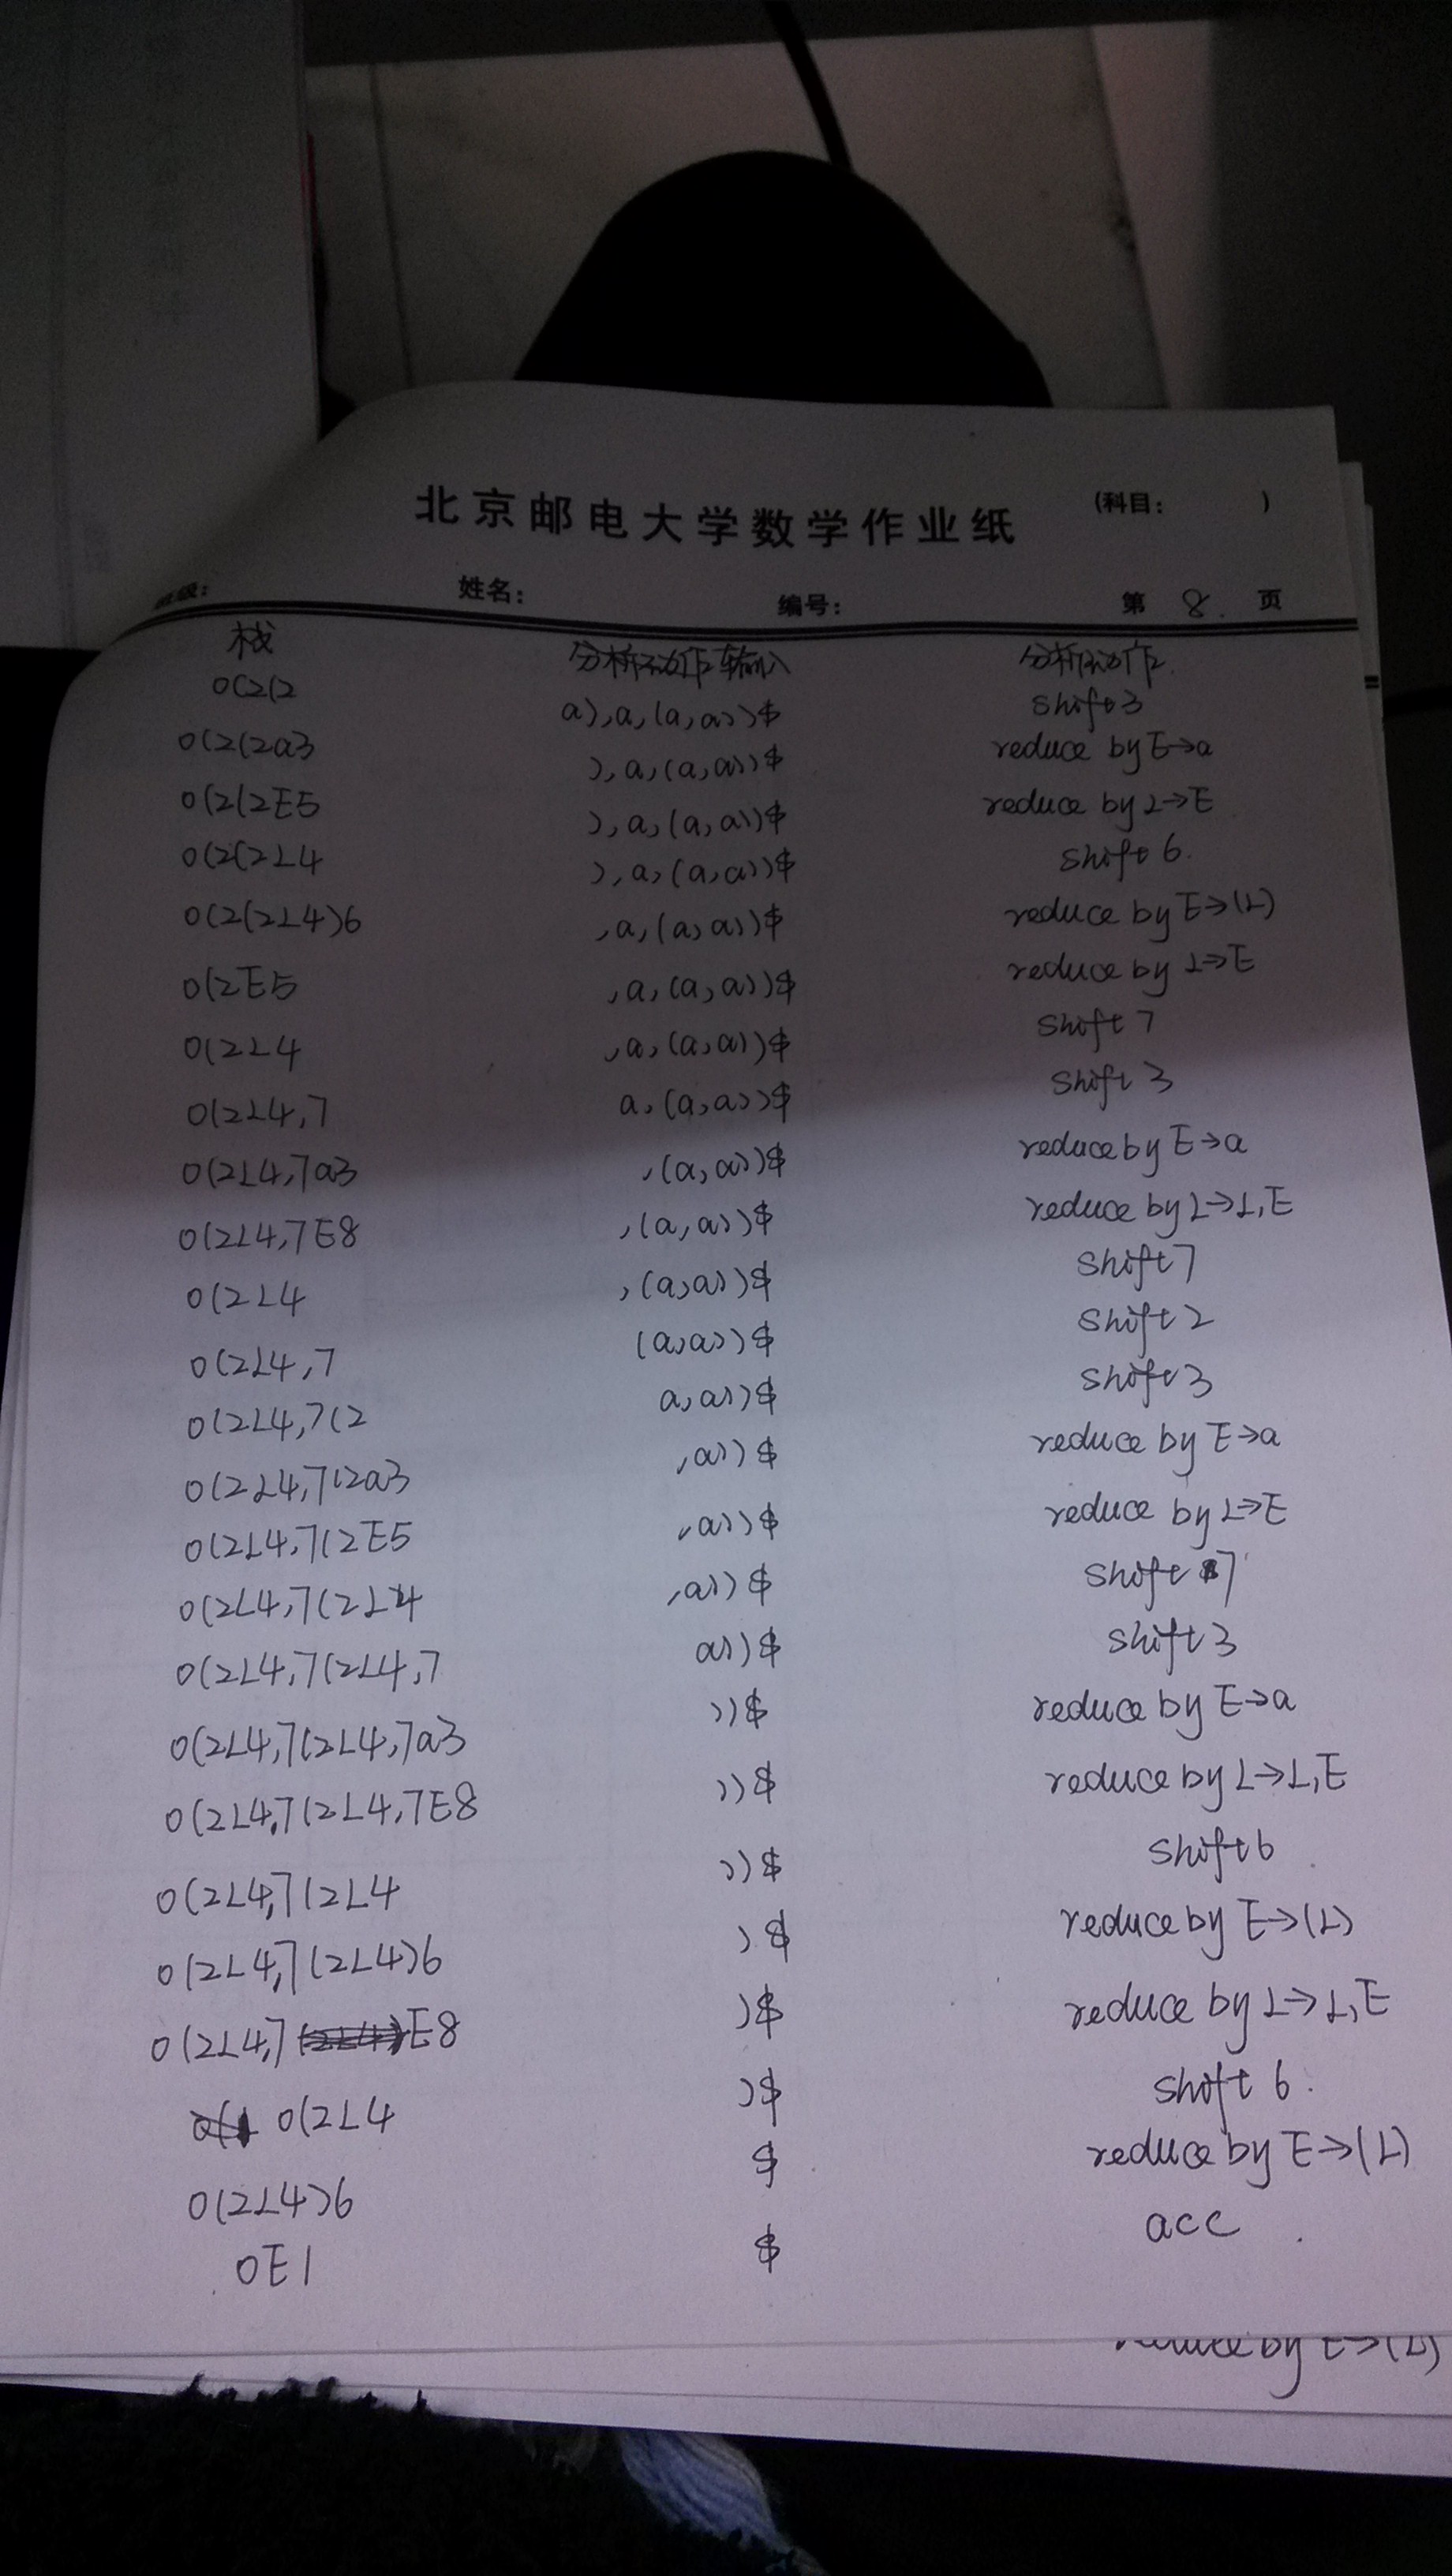 北京邮电大学数学作业纸 (科目: )
级: 姓名: 编号: 第 8. 页
栈 输入 分析动作
0(2(2 a),a,(a,a))$ shift 3
0(2(2a3 ),a,(a,a))$ reduce by E→a
0(2(2E5 ),a,(a,a))$ reduce by L→E
0(2(2L4 ),a,(a,a))$ shift 6.
0(2(2L4)6 ,a,(a,a))$ reduce by E→(L)
0(2E5 ,a,(a,a))$ reduce by L→E
0(2L4 ,a,(a,a))$ shift 7
0(2L4,7 a,(a,a))$ shift 3
0(2L4,7a3 ,(a,a))$ reduce by E→a
0(2L4,7E8 ,(a,a))$ reduce by L→L,E
0(2L4 ,(a,a))$ shift 7
0(2L4,7 (a,a))$ shift 2
0(2L4,7(2 a,a))$ shift 3
0(2L4,7(2a3 ,a))$ reduce by E→a
0(2L4,7(2E5 ,a))$ reduce by L→E
0(2L4,7(2L4 ,a))$ shift 7
0(2L4,7(2L4,7 a))$ shift 3
0(2L4,7(2L4,7a3 ))$ reduce by E→a
0(2L4,7(2L4,7E8 ))$ reduce by L→L,E
0(2L4,7(2L4 ))$ shift 6
0(2L4,7(2L4)6 )$ reduce by E→(L)
0(2L4,7E8 )$ reduce by L→L,E
0(2L4 )$ shift 6.
0(2L4)6 $ reduce by E→(L)
0E1 $ acc
reduce by E→(L)